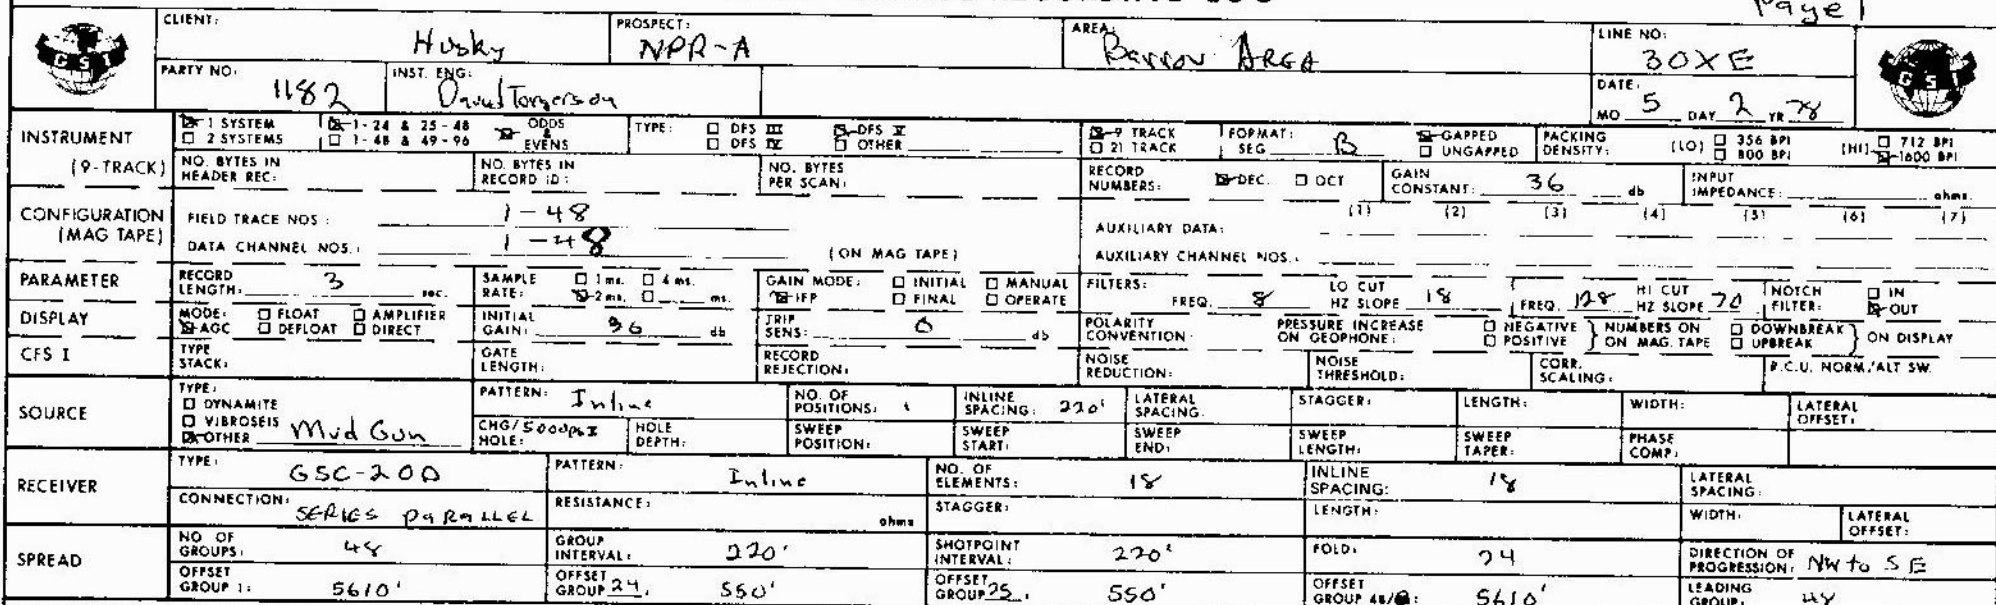 Page 1
CLIENT: Husky PROSPECT: NPR-A AREA: Barrow AREA LINE NO: 30XE
GSI GSI
PARTY NO: 1182 INST. ENG: David Torgerson DATE: MO 5 DAY 2 YR 78
INSTRUMENT (9-TRACK) 1 SYSTEM 1-24 & 25-48 ODDS & EVENS TYPE: DFS III DFS V 9 TRACK FORMAT: SEG B GAPPED PACKING DENSITY: (LO) 356 BPI (HI) 712 BPI
2 SYSTEMS 1-48 & 49-96 DFS IV OTHER 21 TRACK UNGAPPED 800 BPI 1600 BPI
NO. BYTES IN HEADER REC: NO. BYTES IN RECORD ID: NO. BYTES PER SCAN: RECORD NUMBERS: DEC. OCT GAIN CONSTANT: 36 db INPUT IMPEDANCE: ohms.
CONFIGURATION (MAG TAPE) FIELD TRACE NOS: 1-48 AUXILIARY DATA: (1) (2) (3) (4) (5) (6) (7)
DATA CHANNEL NOS.: 1-48 (ON MAG TAPE) AUXILIARY CHANNEL NOS.:
PARAMETER RECORD LENGTH: 3 sec. SAMPLE RATE: 1 ms. 4 ms. 2 ms. ms. GAIN MODE: INITIAL MANUAL IFP FINAL OPERATE FILTERS: LO CUT FREQ. 8 HZ SLOPE 18 HI CUT FREQ. 128 HZ SLOPE 70 NOTCH FILTER: IN OUT
DISPLAY MODE: FLOAT AMPLIFIER AGC DEFLOAT DIRECT INITIAL GAIN: 36 db TRIP SENS: 0 db POLARITY CONVENTION: PRESSURE INCREASE ON GEOPHONE: NEGATIVE POSITIVE } NUMBERS ON ON MAG. TAPE DOWNBREAK UPBREAK } ON DISPLAY
CFS I TYPE STACK: GATE LENGTH: RECORD REJECTION: NOISE REDUCTION: NOISE THRESHOLD: CORR. SCALING: R.C.U. NORM./ALT SW.
SOURCE TYPE: DYNAMITE VIBROSEIS OTHER Mud Gun PATTERN: Inline NO. OF POSITIONS: 1 INLINE SPACING: 220' LATERAL SPACING. STAGGER: LENGTH: WIDTH: LATERAL OFFSET:
CHG/ HOLE: 5000psI HOLE DEPTH: SWEEP POSITION: SWEEP START: SWEEP END: SWEEP LENGTH: SWEEP TAPER: PHASE COMP:
RECEIVER TYPE: GSC-20D PATTERN: Inline NO. OF ELEMENTS: 18 INLINE SPACING: 18 LATERAL SPACING:
CONNECTION: SERIES PARALLEL RESISTANCE: ohms STAGGER: LENGTH: WIDTH: LATERAL OFFSET:
SPREAD NO OF GROUPS: 48 GROUP INTERVAL: 220' SHOTPOINT INTERVAL: 220' FOLD: 24 DIRECTION OF PROGRESSION: NW to SE
OFFSET GROUP 1: 5610' OFFSET GROUP 24: 550' OFFSET GROUP 25: 550' OFFSET GROUP 48/ 5610' LEADING GROUP: 48